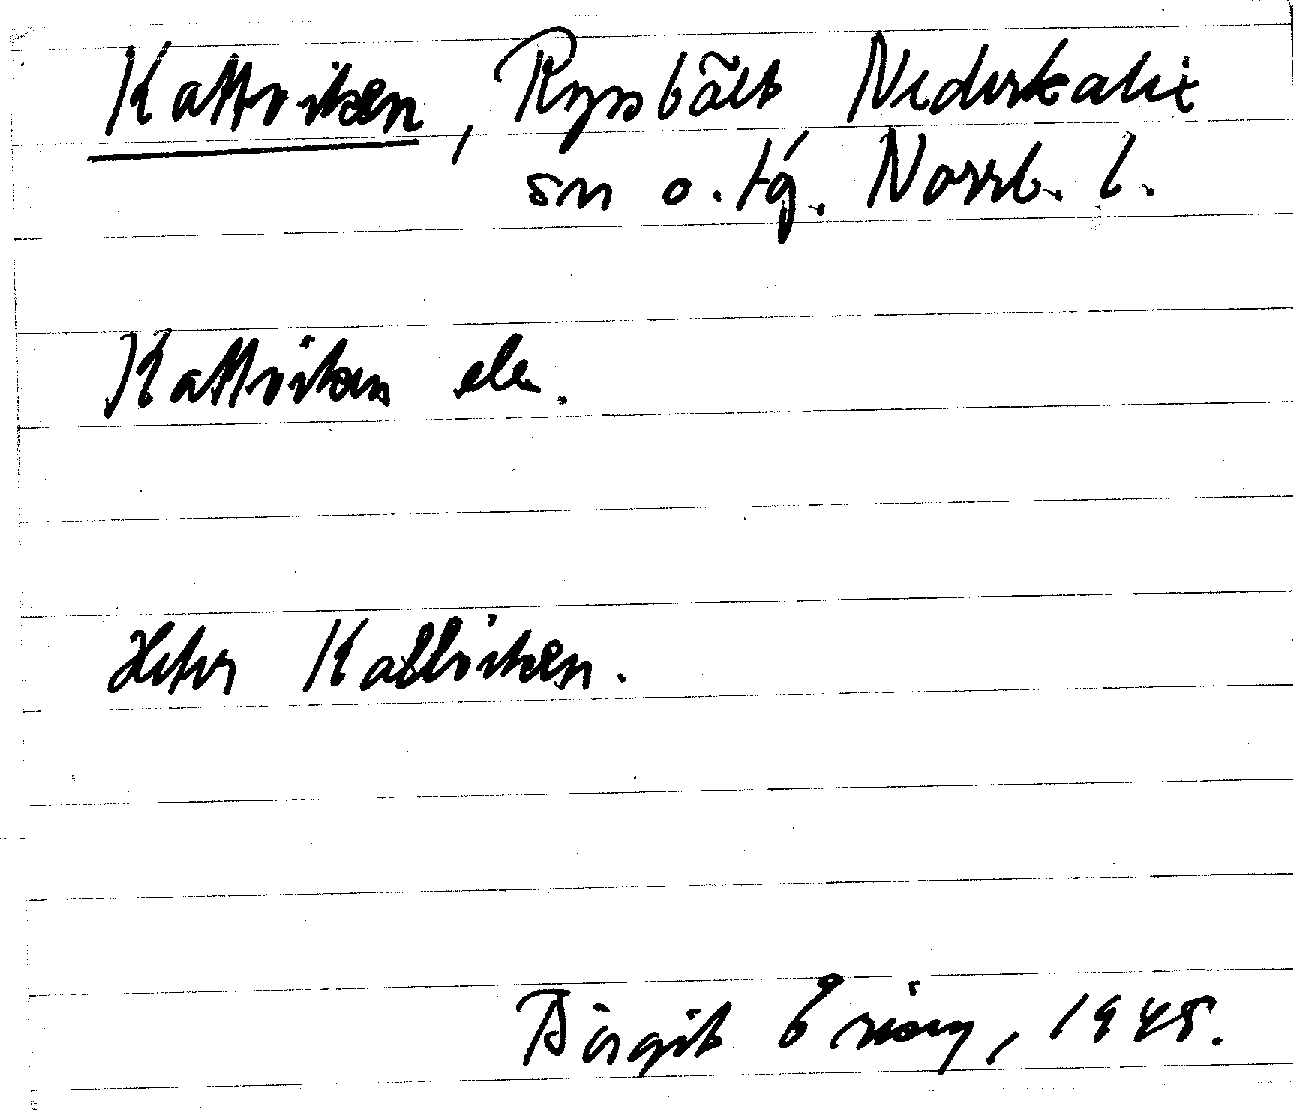 Kattviken, Rysbält Nederkalix
sn o. tg. Norrb. l.
Kattviken ek.
Heter Kattviken.
Birgit 1945.